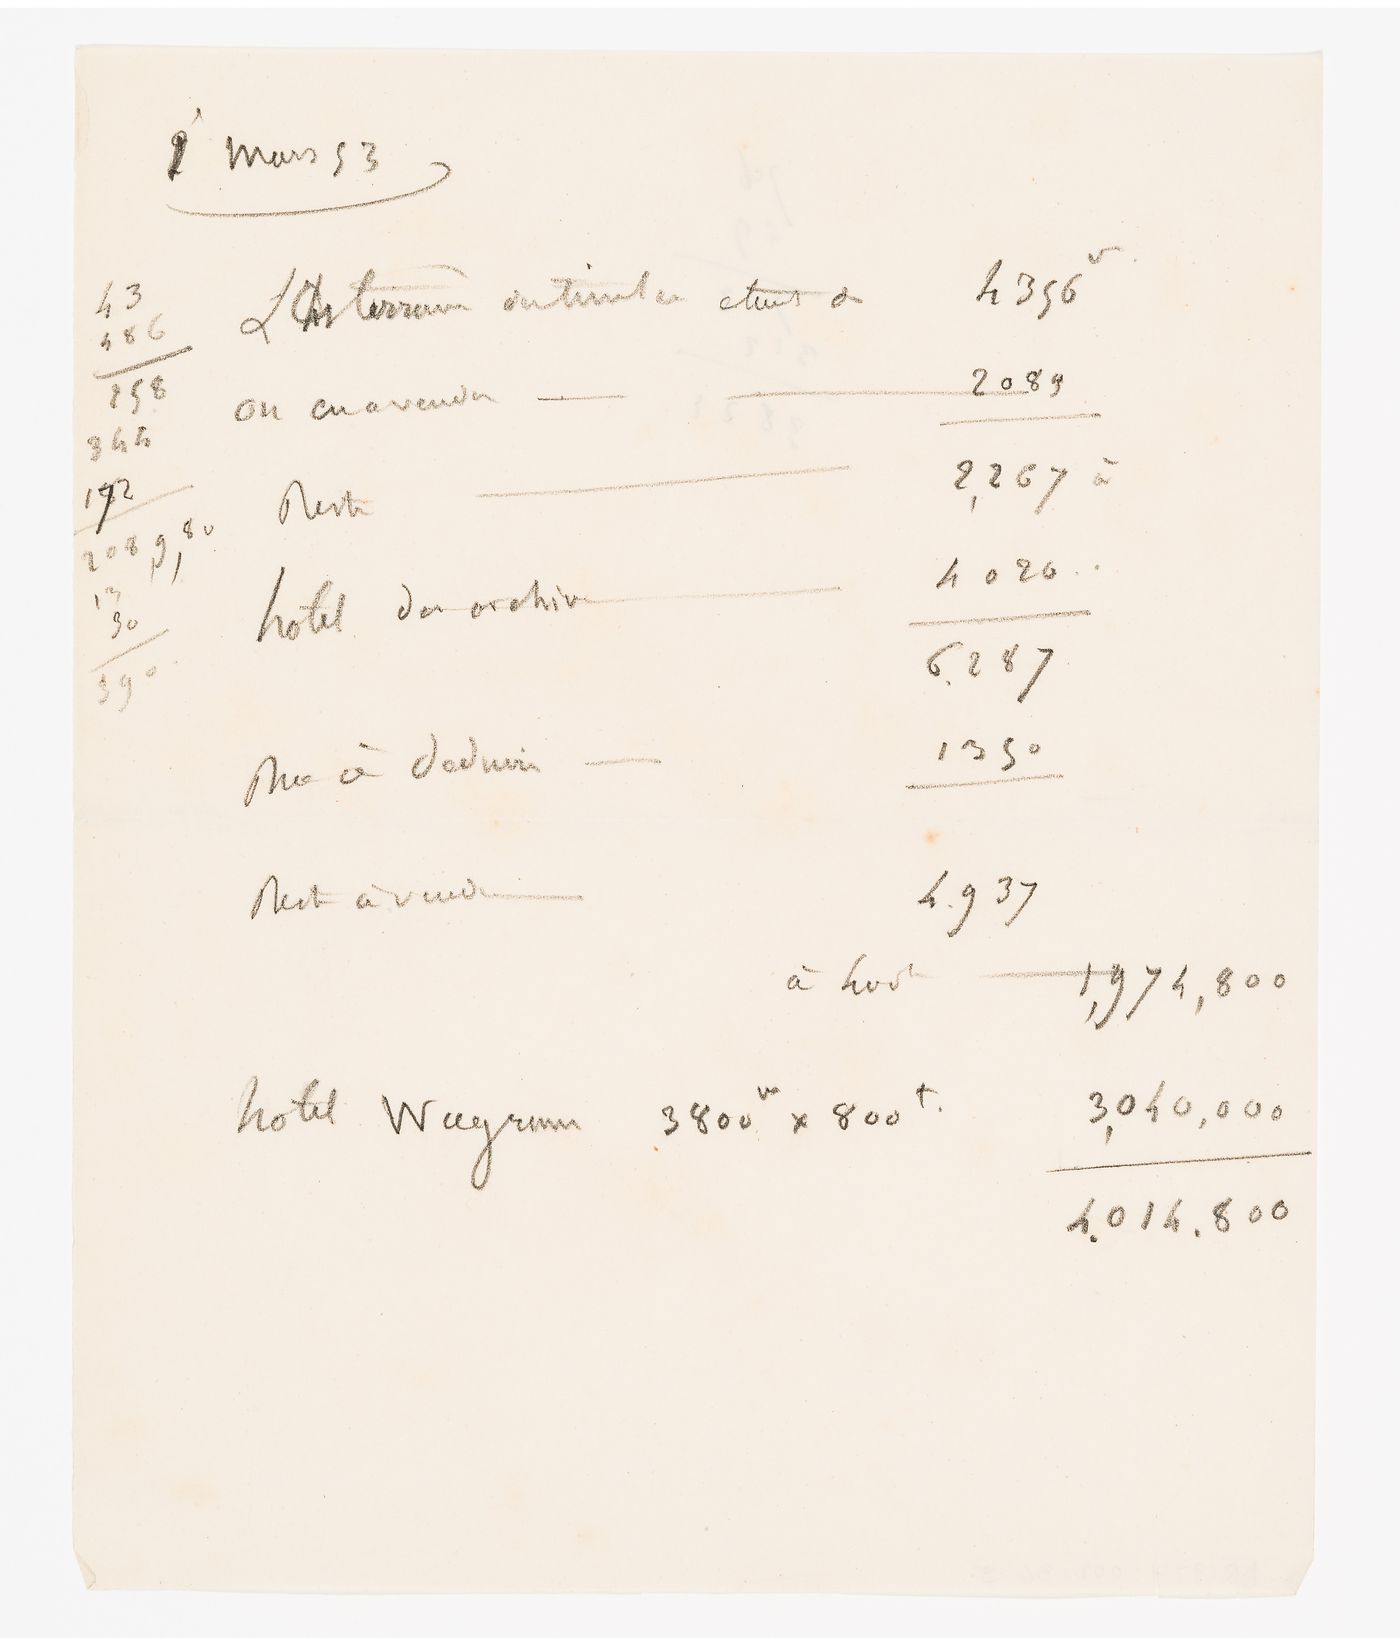 Mars 53
43
486
258
344
172
2089,80
13
30
390
terrain du timbre étant de 4356
on en a vendu 2089
Reste 2,267 à
hotel des archives 4020
6.287
Rue à déduire 1350
Reste à vendre 4.937
à 400f 1,974,800
hotel Wagram 3800m x 800f. 3,040,000
4.014.800